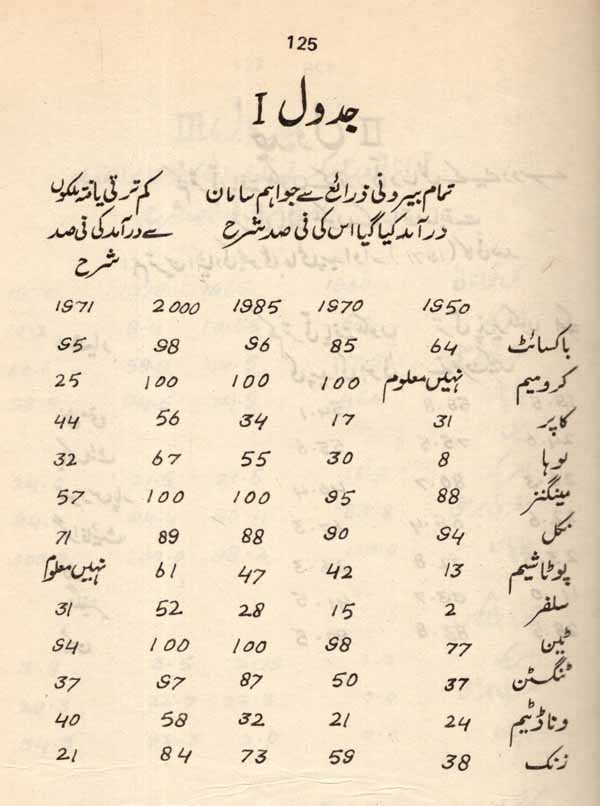 125
جدول I
تمام بیرونی ذرائع سے جو اہم سامان کم ترقی یافتہ ملکوں
درآمد کیا گیا اس کی فی صد شرح سے درآمد کی فی صد
شرح
1950 1970 1985 2000 1971
باکسائٹ 64 85 96 98 95
کرومیم نہیں معلوم 100 100 100 25
کاپر 31 17 34 56 44
لوہا 8 30 55 67 32
مینگنز 88 95 100 100 57
نکل 94 90 88 89 71
پوٹاشیم 13 42 47 61 نہیں معلوم
سلفر 2 15 28 52 31
ٹین 77 98 100 100 94
ٹنگسٹن 37 50 87 97 37
وناڈئیم 24 21 32 58 40
زنک 38 59 73 84 21